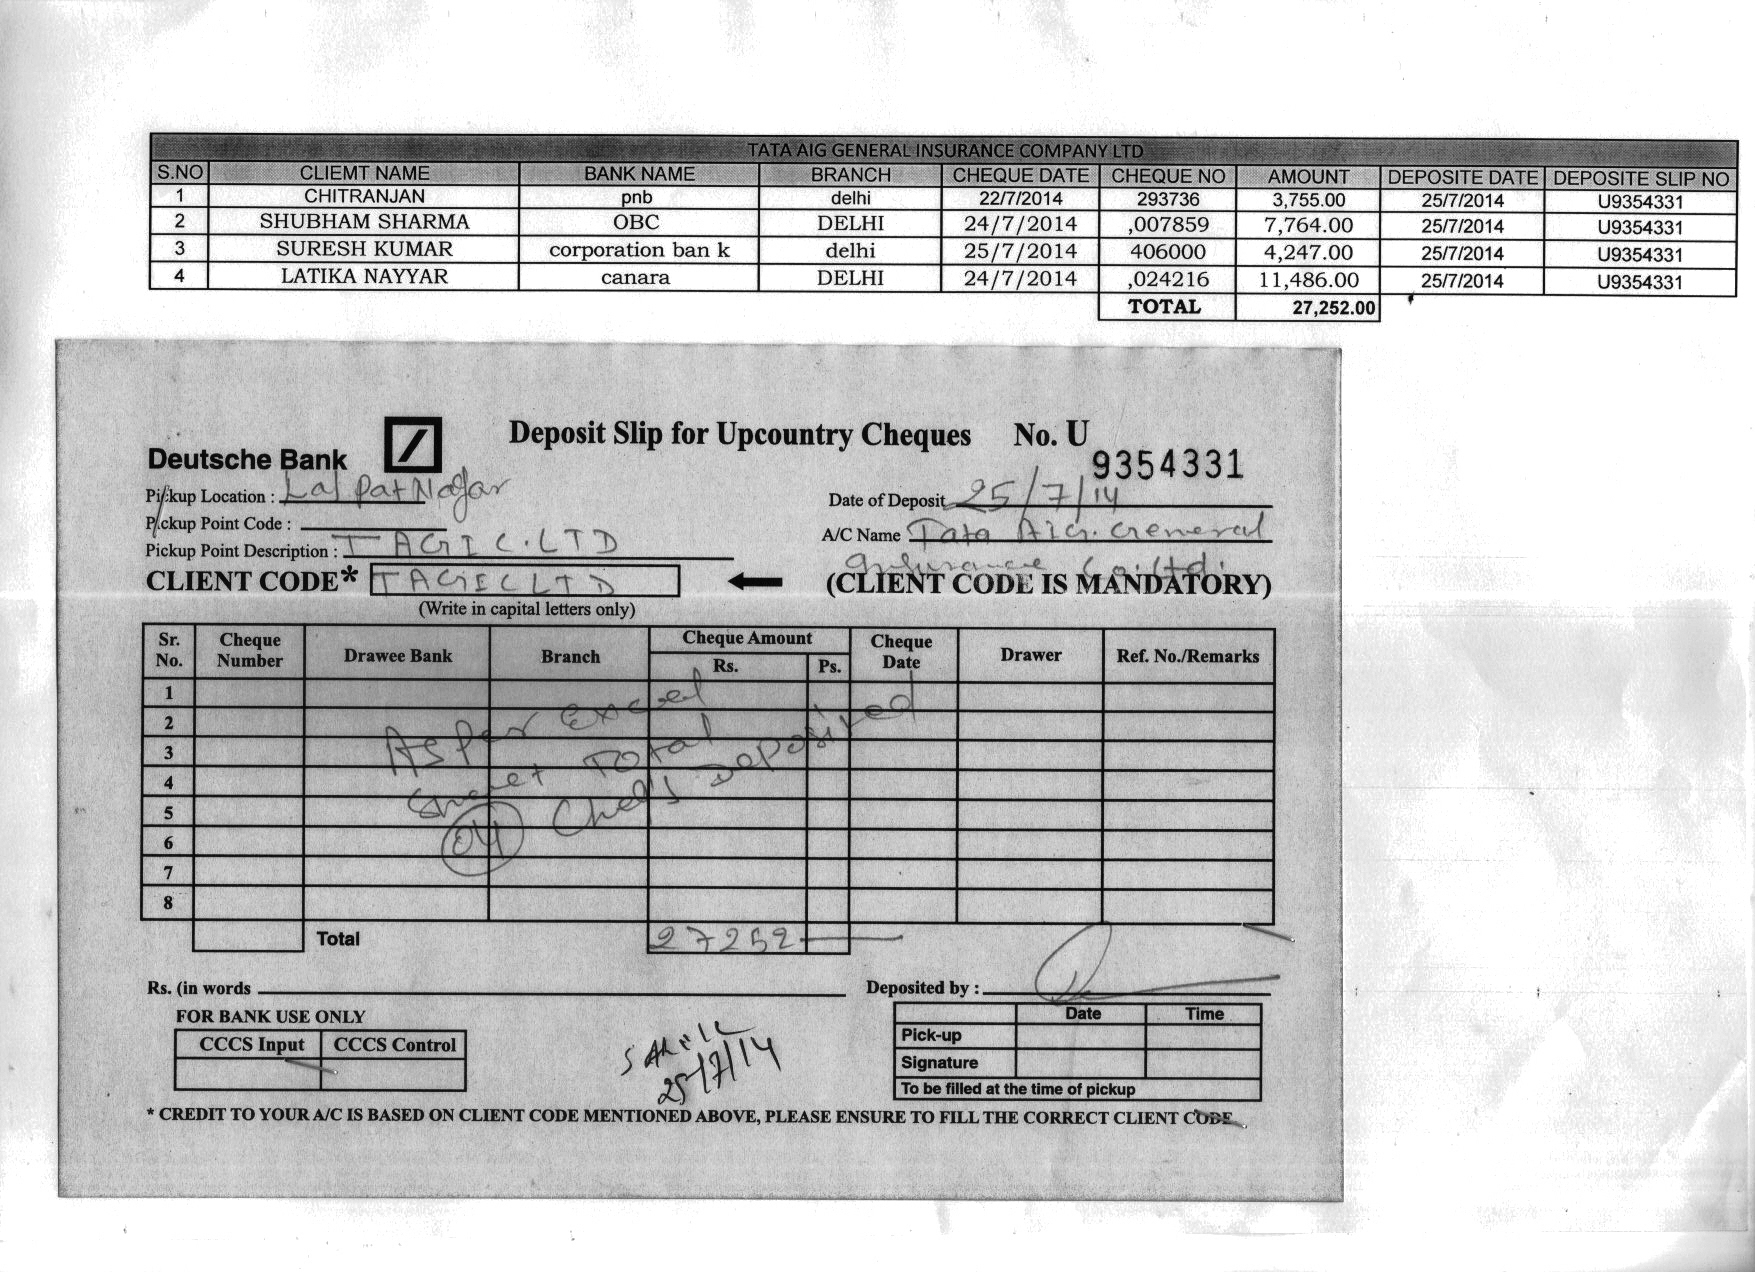 TATA AIG GENERAL INSURANCE COMPANY LTD
S.NO CLIEMT NAME BANK NAME BRANCH CHEQUE DATE CHEQUE NO AMOUNT DEPOSITE DATE DEPOSITE SLIP NO
1 CHITRANJAN pnb delhi 22/7/2014 293736 3,755.00 25/7/2014 U9354331
2 SHUBHAM SHARMA OBC DELHI 24/7/2014 ,007859 7,764.00 25/7/2014 U9354331
3 SURESH KUMAR corporation ban k delhi 25/7/2014 406000 4,247.00 25/7/2014 U9354331
4 LATIKA NAYYAR canara DELHI 24/7/2014 ,024216 11,486.00 25/7/2014 U9354331
TOTAL 27,252.00
Deposit Slip for Upcountry Cheques No. U 9354331
Deutsche Bank
Pickup Location : Lajpat Nagar
Date of Deposit 25/7/14
Pickup Point Code :
A/C Name Tata AIG. General
Insurance Co. Ltd.
Pickup Point Description : TAGIC.LTD
CLIENT CODE* TAGICLTD (CLIENT CODE IS MANDATORY)
(Write in capital letters only)
Sr. No. Cheque Number Drawee Bank Branch Cheque Amount Rs. Ps. Cheque Date Drawer Ref. No./Remarks
1
2
3
4
5
6
7
8
As per Excel
Sheet Total
04 Chq's Deposited
Total 27252
Rs. (in words
Deposited by :
FOR BANK USE ONLY
CCCS Input CCCS Control
25/7/14
Date Time
Pick-up
Signature
To be filled at the time of pickup
* CREDIT TO YOUR A/C IS BASED ON CLIENT CODE MENTIONED ABOVE, PLEASE ENSURE TO FILL THE CORRECT CLIENT CODE